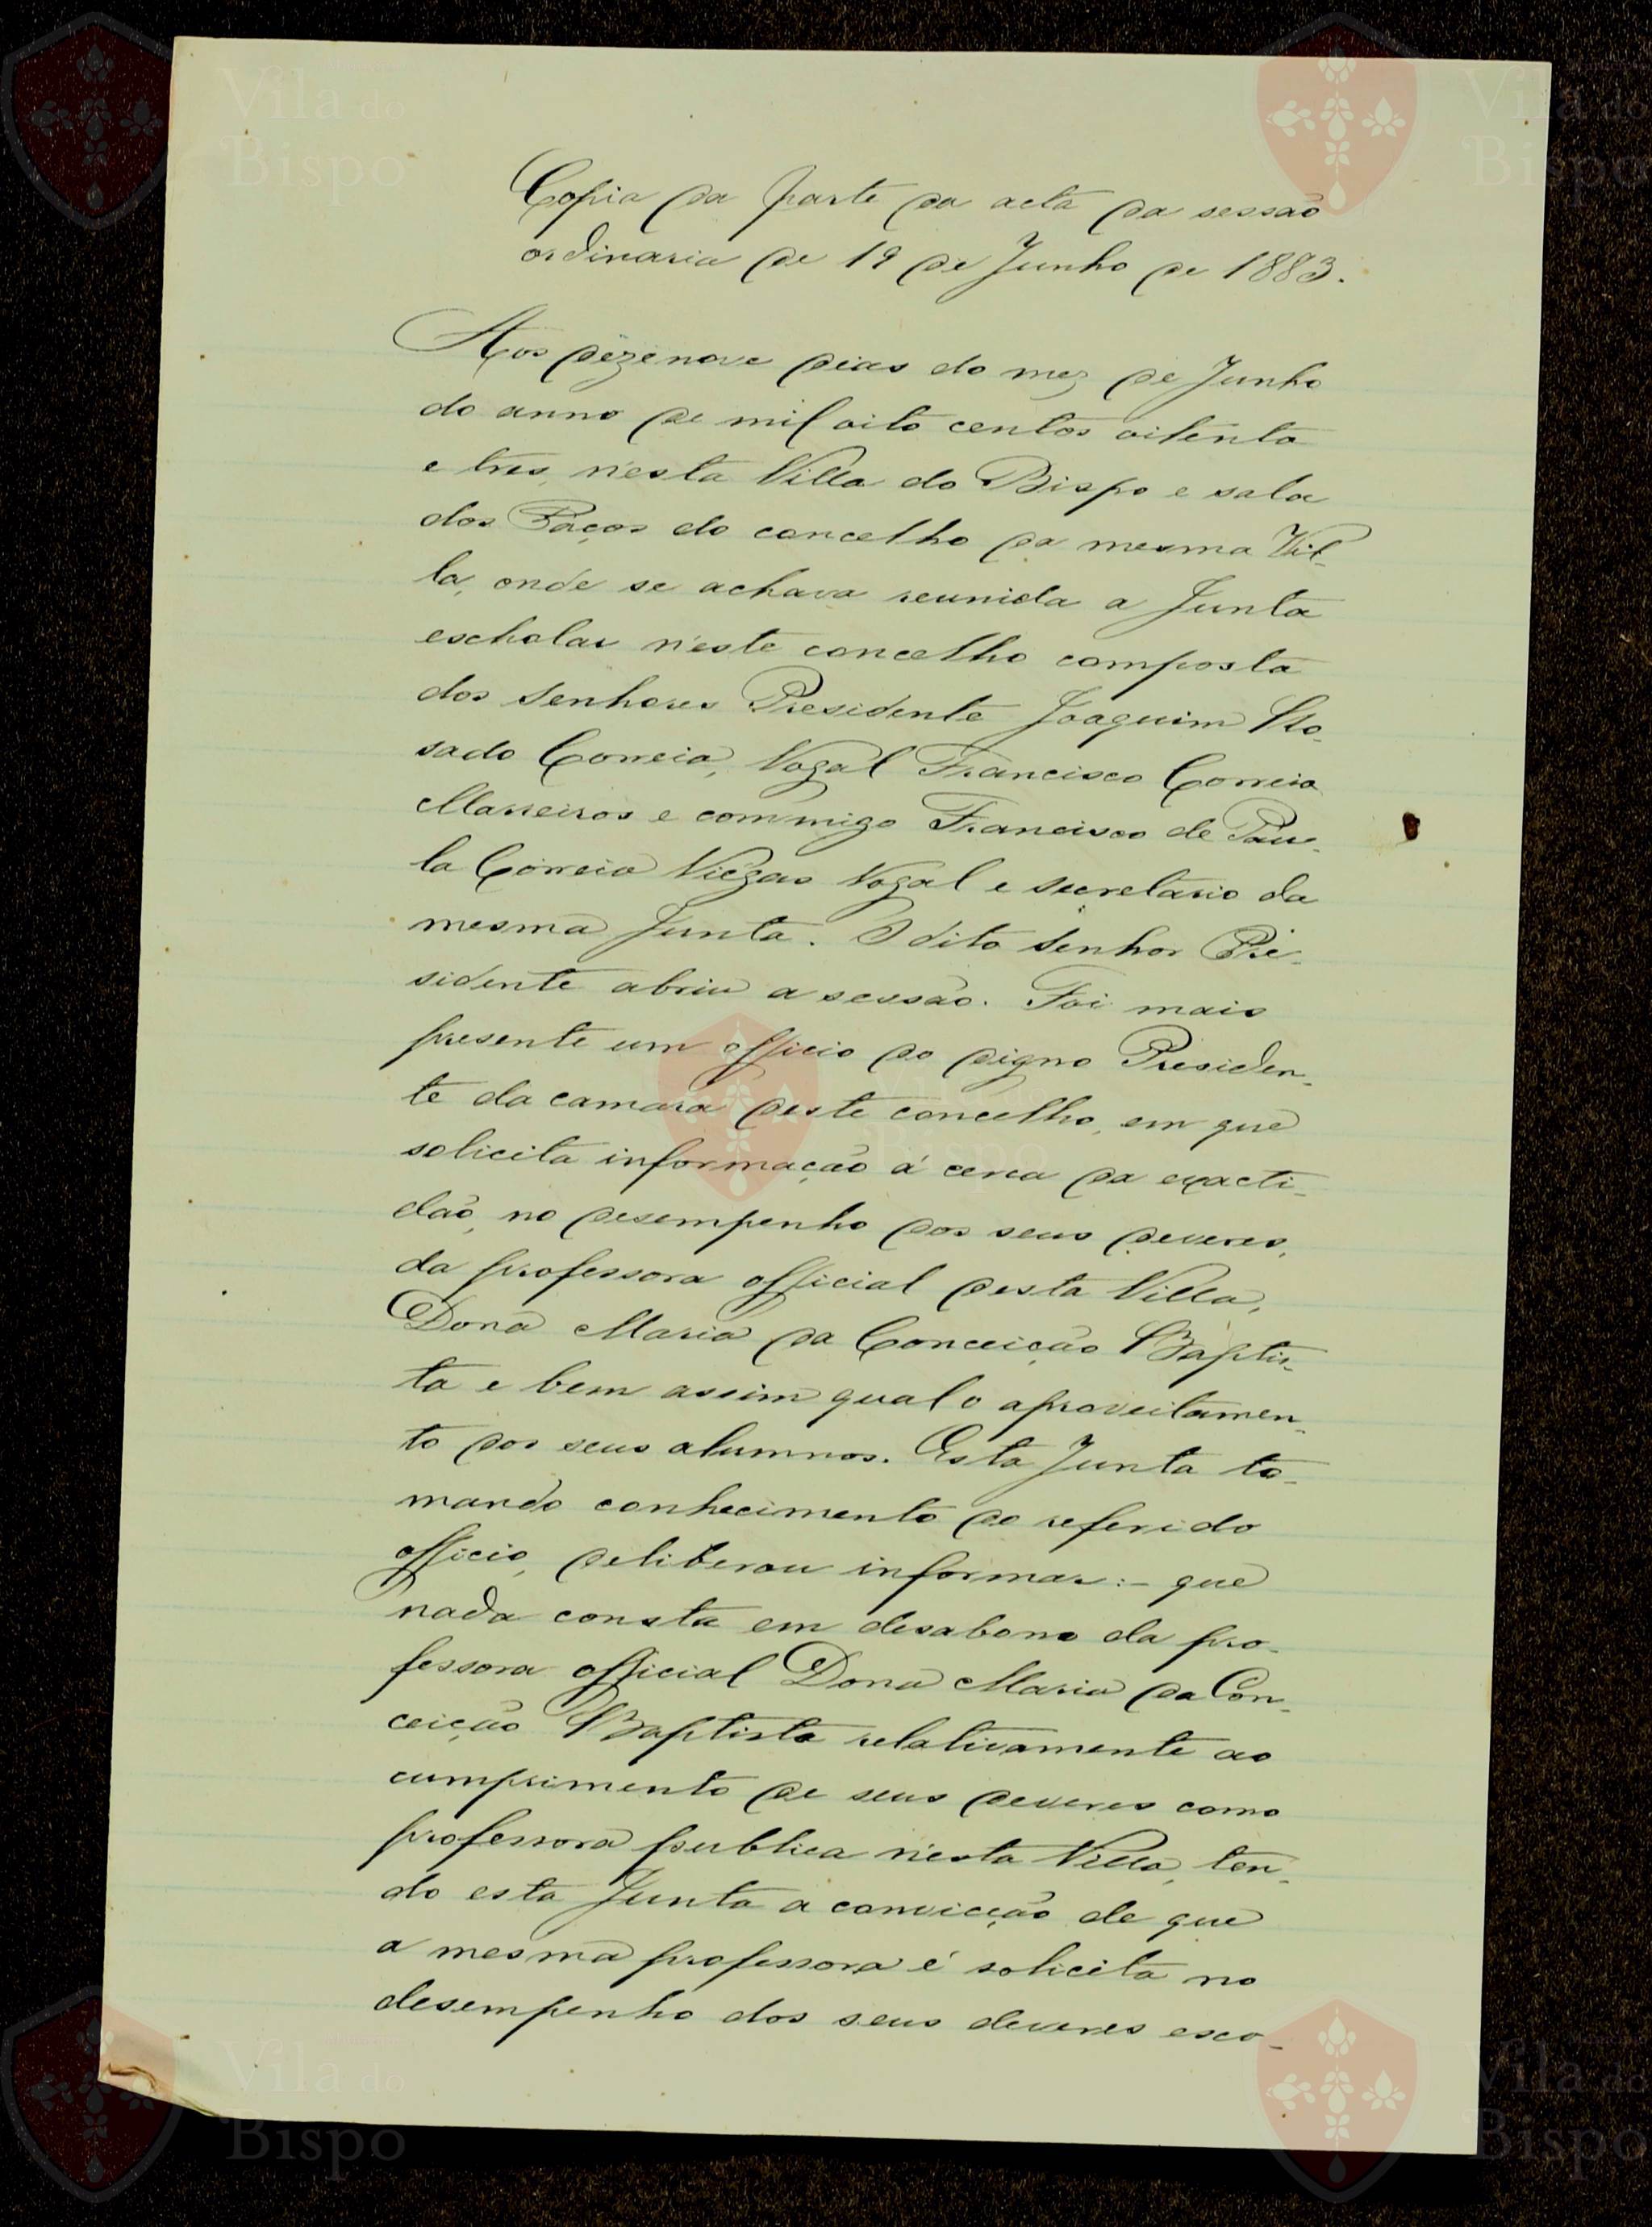 Copia da parte da acta da sessão
ordinaria de 19 de Junho de 1883.
Aos dezenove dias do mez de Junho
do anno de mil oito centos oitenta
e tres, n'esta Villa do Bispo e sala
dos Paços do concelho da mesma Vil-
la, onde se achava reunida a Junta
escholar n'este concelho composta
dos Senhores Presidente Joaquim Ro-
sado Correia, Vogal Francisco Correia
Marreiros e commigo Francisco de Pau-
la Correia Viégas Vogal e secretario da
mesma Junta. O dito Senhor Pre-
sidente abriu a sessão. Foi mais
presente um officio do digno Presiden-
te da camara deste concelho, em que
solicita informação á cerca da exacti-
dão, no desempenho dos seus deveres,
da professora official desta Villa,
Dona Maria da Conceição Baptis-
ta e bem assim qual o aproveitamen-
to dos seus alumnos. Esta Junta to-
mando conhecimento do referido
officio, deliberou informar:- que
nada consta em desabono da pro-
fessora official Dona Maria da Con-
ceição Baptista relativamente ao
cumprimento de seus deveres como
professora publica n'esta Villa, ten-
do esta Junta a convicção de que
a mesma professora é solicita no
desempenho dos seus deveres esco-
Vila do
Bispo
Vila do
Bispo
Vila do
Bispo
Vila do
Bispo
Vila do
Bispo